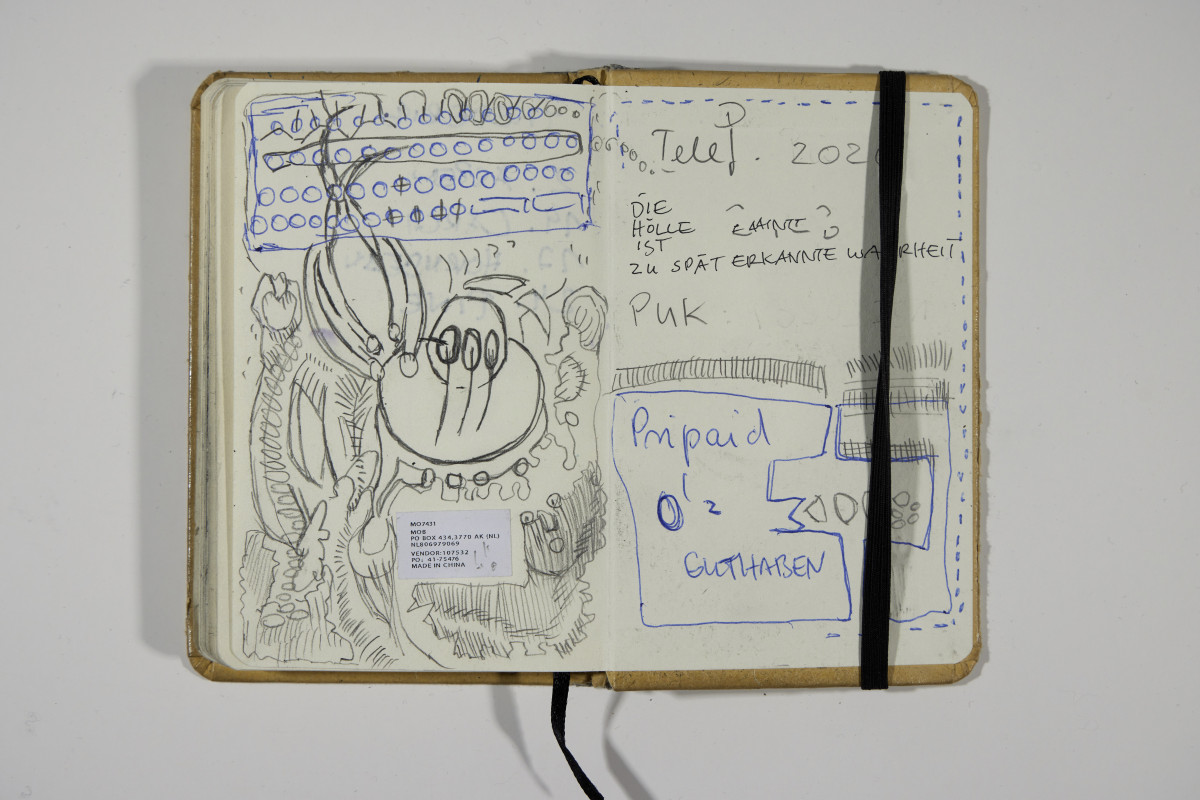 MO7431
MOB
PO BOX 434,3770 AK (NL)
NL806979069
VENDOR:107532
PO: 41-75476
MADE IN CHINA
Telef. 202
DIE
HÖLLE
IST
ZU SPÄT ERKANNTE WAHRHEIT
PUK
Pripaid
GUTHABEN